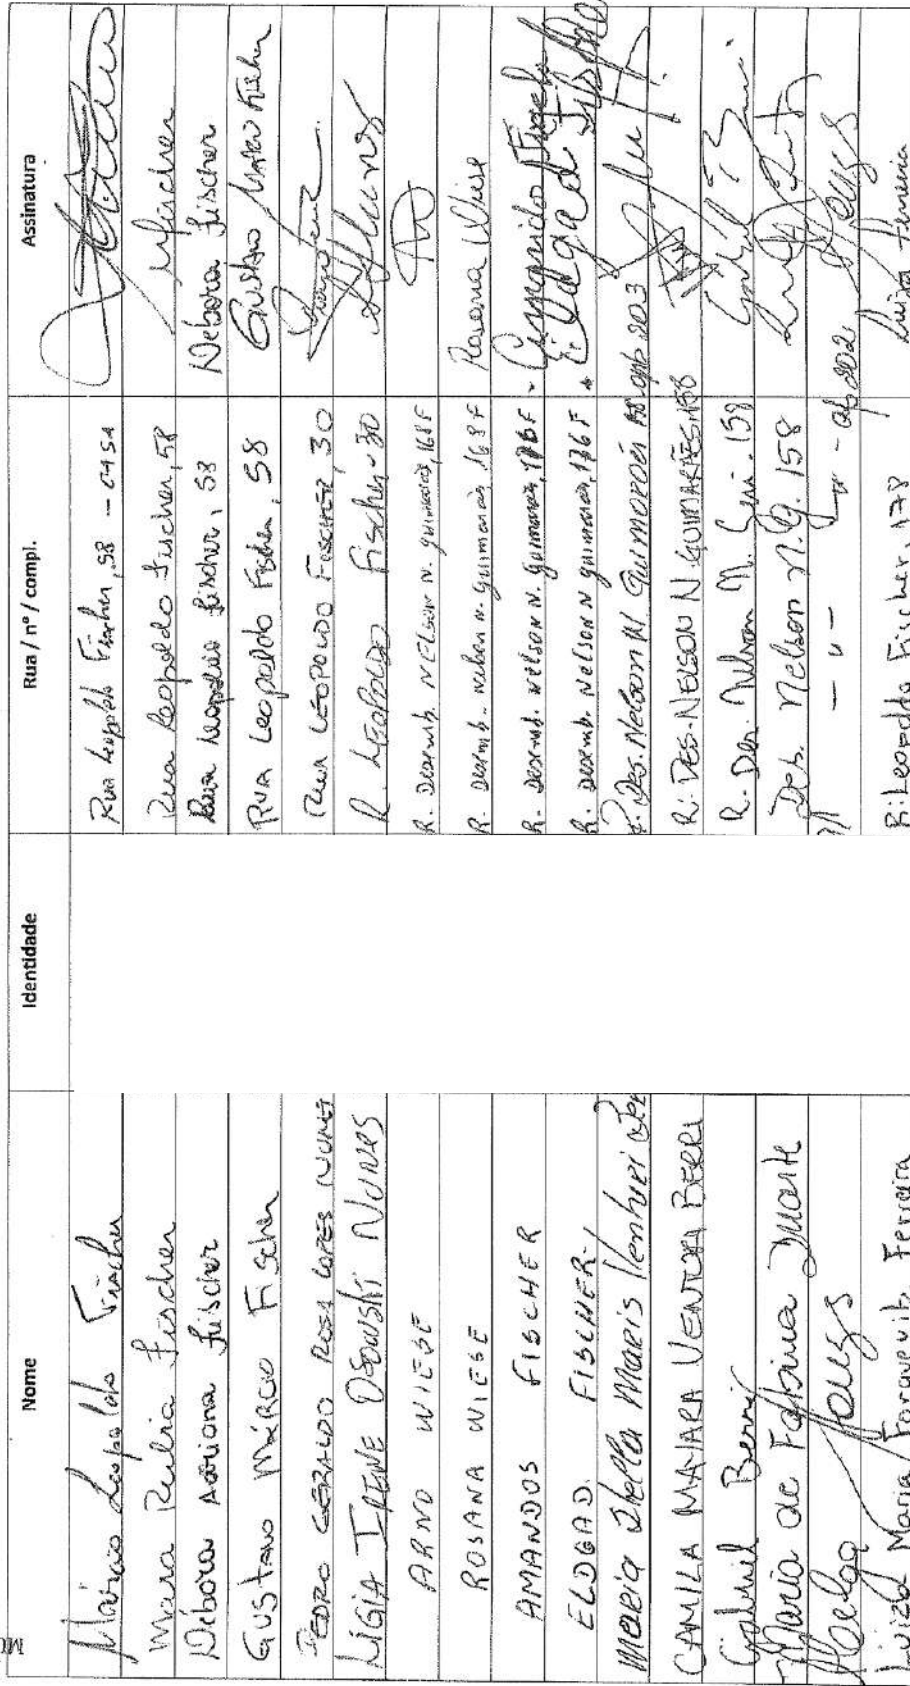 Nome Identidade Rua / nº / compl. Assinatura
Márcio Leopoldo Fischer Rua Leopoldo Fischer, 58 - CASA
Mara Rubia Fischer Rua Leopoldo Fischer, 58 Mfischer
Débora Adriana Fischer Rua Leopoldo Fischer, 58 Débora Fischer
Gustavo Márcio Fischer Rua Leopoldo Fischer, 58 Gustavo Márcio Fischer
PEDRO GERALDO ROSA LOPES NUNES Rua LEOPOLDO FISCHER, 30
LÍGIA IRENE Osowski NUNES R. LEOPOLDO Fischer - 30
ARNO WIESE R. Desemb. NELSON N. guimarães, 168 F
ROSANA WIESE R. Desemb. Nelson N. guimarães, 168 F Rosana Wiese
AMANDOS FISCHER R. Desemb. Nelson N. guimarães, 176 F
ELDGAD FISCHER R. Desemb. Nelson N guimarães, 176 F
Maria Stella Maris R. Des. Nelson N Guimarães 158 apto 203
CAMILA MAIARA VENTURA BERRI R. DES. NELSON N. GUIMARÃES, 158
Gabriel Berri R. Des. Nelson N. Gui. 158
Maria de Fatima Duarte Des. Nelson N. G. 158
- " - - " - ap 202
Luiza Maria Ferreira R: Leopoldo Fischer, 178 Luiza Ferreira